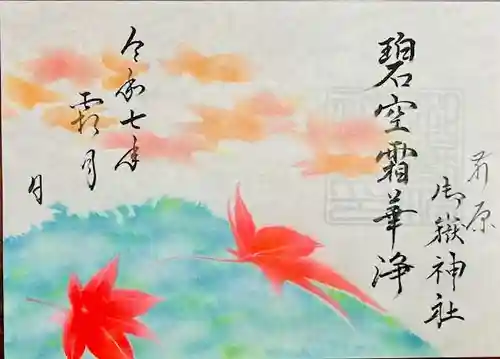 碧空霜華浄
前原
御嶽神社
令和七年
霜月
日